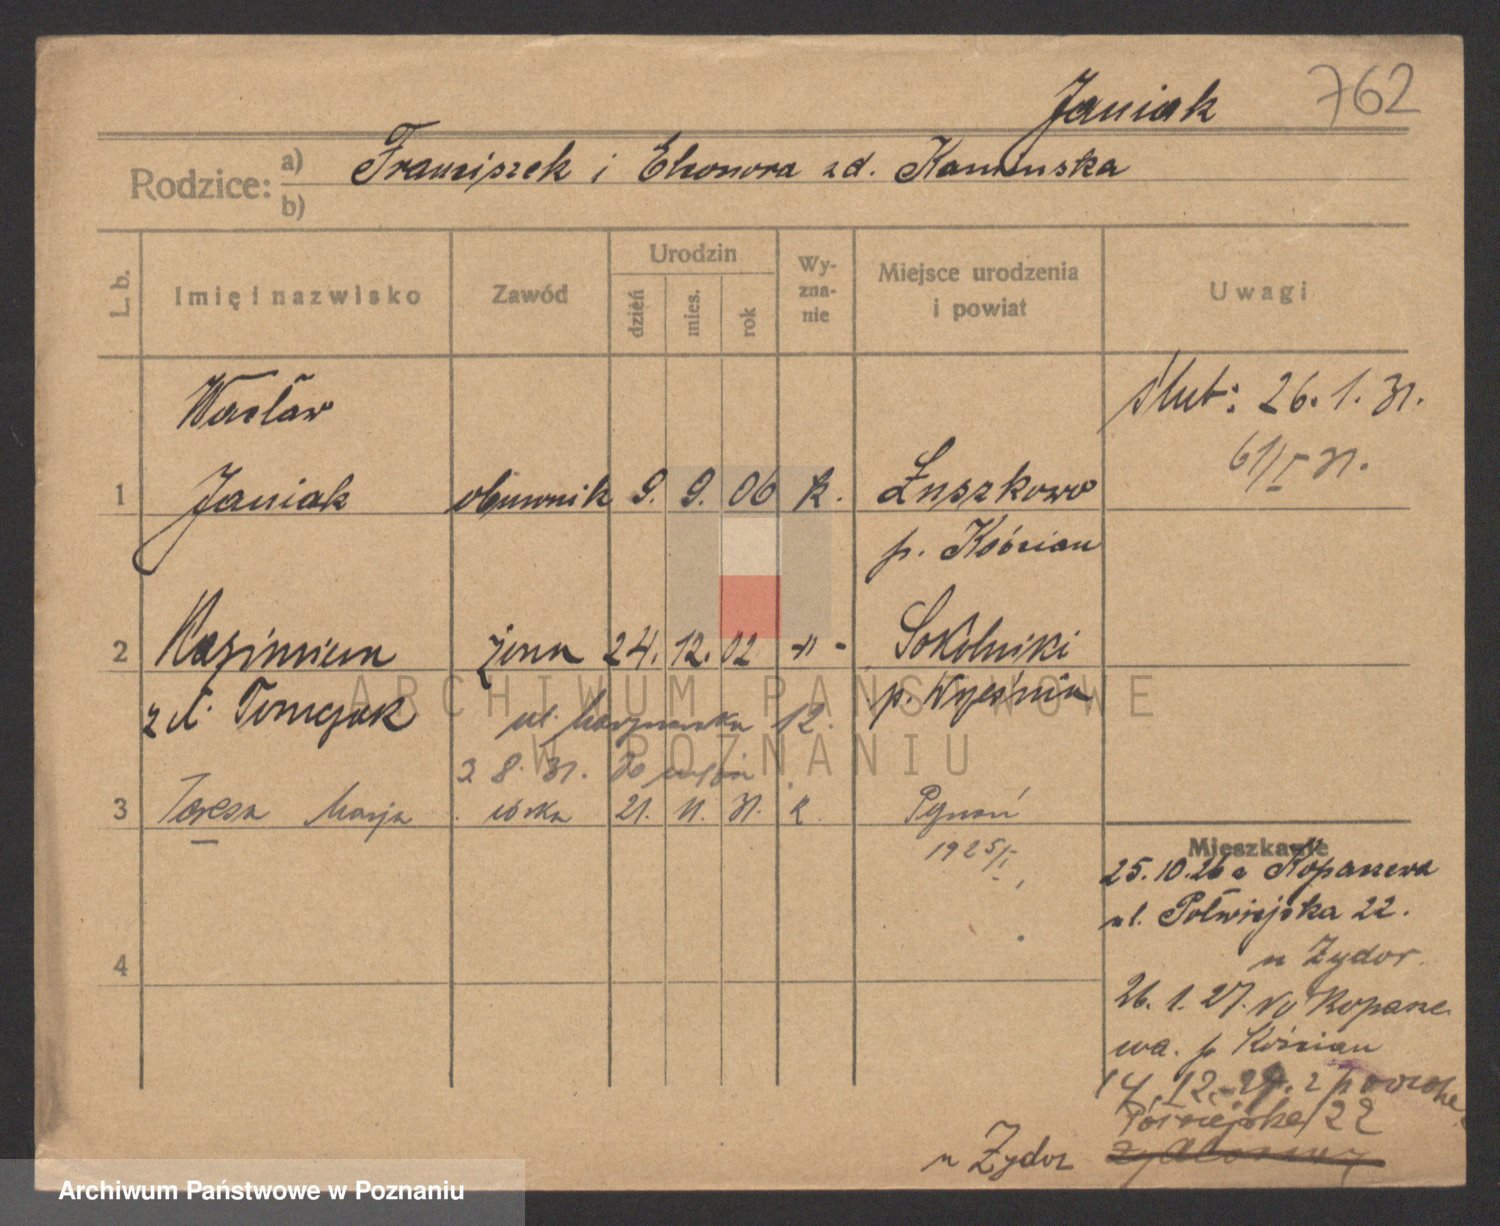 762
Janiak
Rodzice: a) Franciszek i Eleonora zd. Kaminska
b)
L. b. Imię i nazwisko Zawód Urodzin dzień mies. rok Wy-zna-nie Miejsce urodzenia i powiat Uwagi
Wacław ślub: 26. 1. 31.
61/I 31.
1 Janiak obuwnik 9. 9. 06 k. Łuszkowo
p. Kościan
2 Kazimiera żona 24. 12. 02 -"- Sokolniki
zd. Tomczak ul. 12. p. Września
2 8. 31.
3 Teresa Marja córka 21. 11. 31. k Poznań
1925/I
Mieszkanie
25. 10. 26 z Kopaszewa
ul. Półwiejska 22.
u Zydor.
4
26. 1. 27. do Kopasze-
wa. p Kościan
14. 12. 27. z powrotem
Półwiejska 22
u Zydor
ARCHIWUM PAŃSTWOWE
W POZNANIU
Archiwum Państwowe w Poznaniu